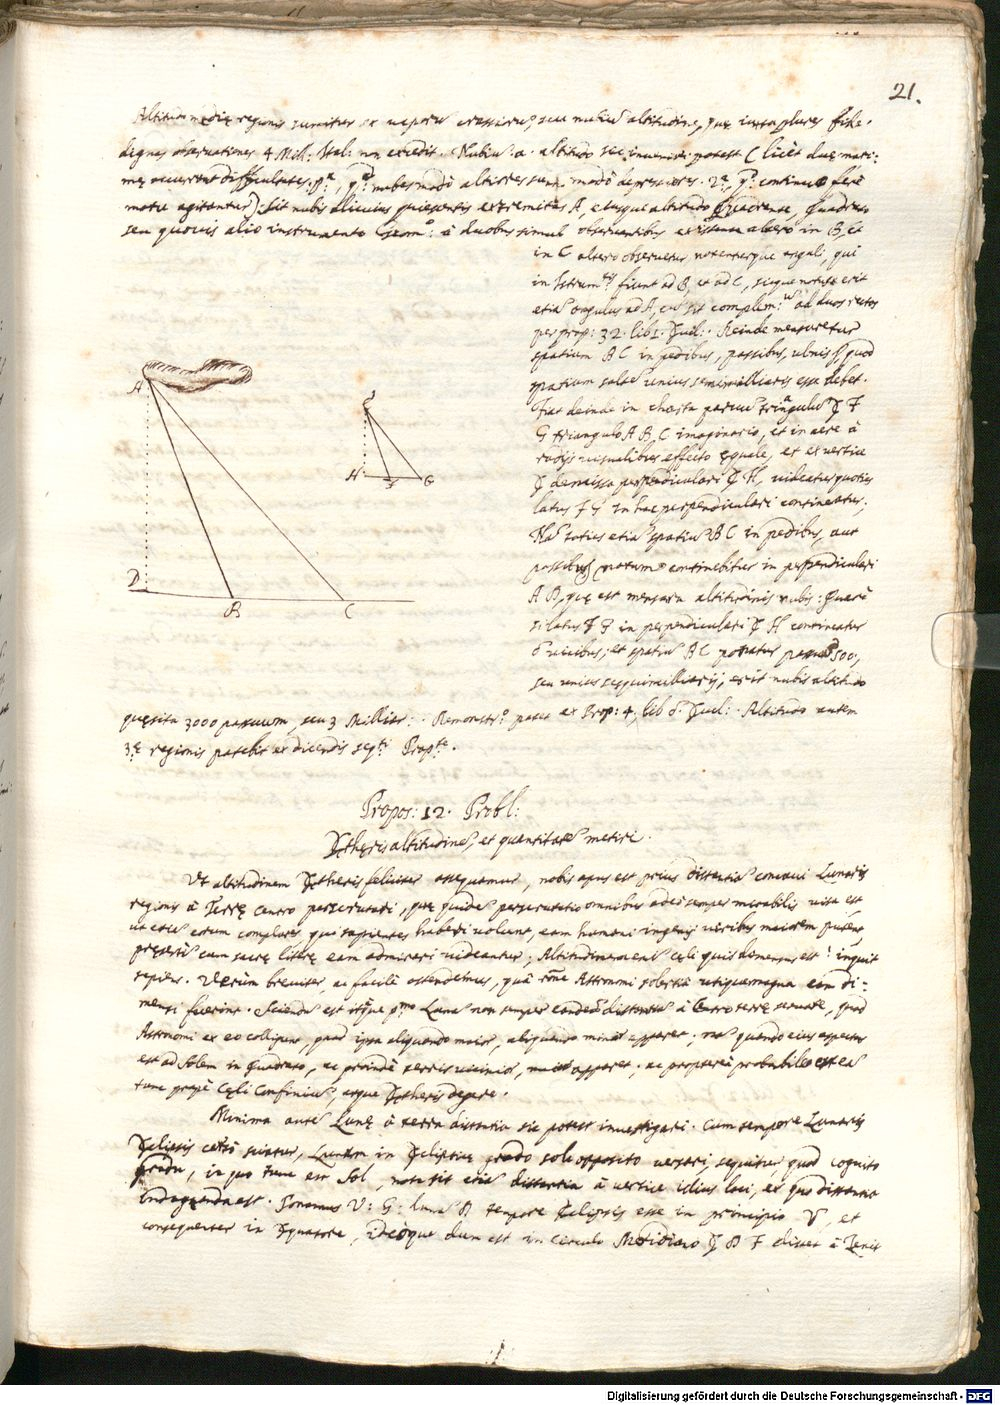 21.
Altitudo medię regionis sumitur ex vaporũ crassiorũ, seu nubiũ altitudine, quę iuxta plures fide-
dignas observationes 4 Mill: Ital: non excedit. Nubiũ a. altitudo sic inveniri potest (licèt duę maxi-
mę occurrant difficultates, pª, qd nubes modò altiores sunt, modò depressiores. 2ª, qd continuo ferè
motu agitantur). Sit nubis alicuius quiescentis extremitas A, eiusque altitudo quęrenda, Quadran
seu quovis alio instrumento Geom: à duobus simul observantibus existente altero in B, et
in C altero observetur, notenturque anguli, qui
in Instrumtis fiunt ad B, et ad C, sicque notus erit
etiã angulus ad A, cũ sit complem: ad duos rectos
per prop: 32. lib 1. Eucl: Deinde mensuretur
spatium BC in pedibus, passibus, ulnis, quod
spatium saltẽ unius semimilliaris esse debet.
Fiat deinde in charta parvũ triãngulũ E F
G triangulo A B C imaginario, et in aere à
radijs visualibus effecto ęquale, et ex vertice
E demissa perpendiculari E H, videatur quoties
latus F G in hac perpendiculari contineatur.
Nã toties etiã spatiũ BC in pedibus, aut
passibus notum continebitur in perpendiculari
A D, quę est mensura altitudinis nubis: Quarè
si latus F G in perpendiculari E H contineatur
6 vicibus; et spatiũ BC ponatur passuũ 500,
erit nubis altitudo
quęsita 3000 passuum, seu 3 Milliar: Demonstrº patet ex Prop: 4, lib 6. Eucl: Altitudo autem
3ę regionis patebit ex dicendis seqti Propte.
Propos: 12. Probl:
Ętheris altitudinẽ, et quantitatẽ metiri.
Ut altitudinem Ętheris feliciter assequamur, nobis opus est prius distantiã concavi Lunaris
regionis à Terrę centro perscrutari, quę quidẽ perscrutatio omnibus adeò semper mirabilis visa est,
ut etiã eorum complures, qui sapientes haberi volunt, eam humani ingenij viribus maiorem putent,
pręsertĩ cum sacrę litterę eam admirari videantur; Altitudinem enĩ Cęli quis dimensus est? inquit
sapiens. Verùm breviter ac facilè ostendemus, quã rõne Astronomi solertiã utique magna eam di-
mensi fuerint. Sciendũ est itãque pmo Lunã non semper eandẽ distantiã à Centro terrę servare, quod
Astronomi ex eo colligunt, quod ipsa aliquando maior, aliquando minor apparet; nã quando eius aspectus
est ad Solem in Quadrato, ac proindè terris vicinior, maior apparet; ac proptereà probabile est eã
tunc propè Cęli Confinium, atque Ętheris degere.
Minima autẽ Lunę à terra distantia sic potest investigari. Cum tempore Lunaris
Eclipsis certò sciatur, Lunam in Eclipticę gradu soli opposito versari, sequitur, quod cognito
gradu, in quo tunc est Sol, nota sit etiã distantia à vertice illius loci, ex quo distantia
indaganda est. Ponamus V: G: lunã B tempore Eclipsis esse in principio ♈, et
consequenter in Ęquatore, ideòque dum est in circulo Meridiano E B F distet à Zenit
A
D
B
C
E
H
F
G
Digitalisierung gefördert durch die Deutsche Forschungsgemeinschaft - DFG